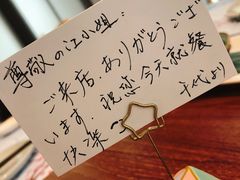 尊敬の江小姐：
ご来店、ありがとうござ
います。祝您今天就餐
快楽
千代より